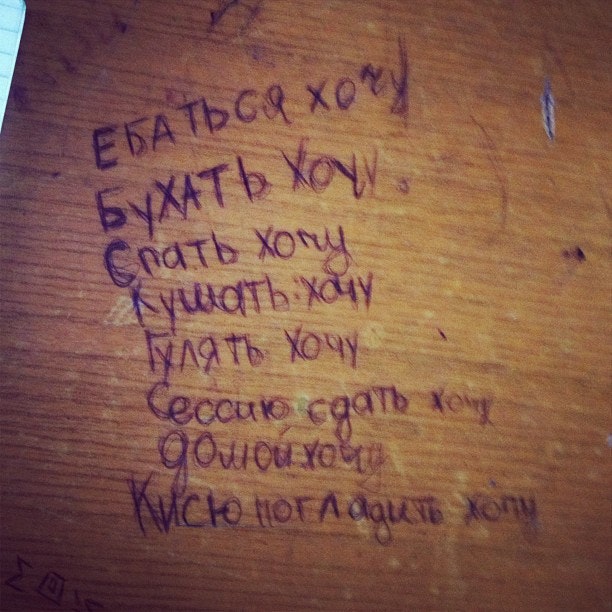 ЕБАТЬСЯ ХОЧУ
БУХАТЬ ХОЧУ
Спать хочу
Кушать хочу
Гулять хочу
Сессию сдать хочу
домой хочу
Кисю погладить хочу